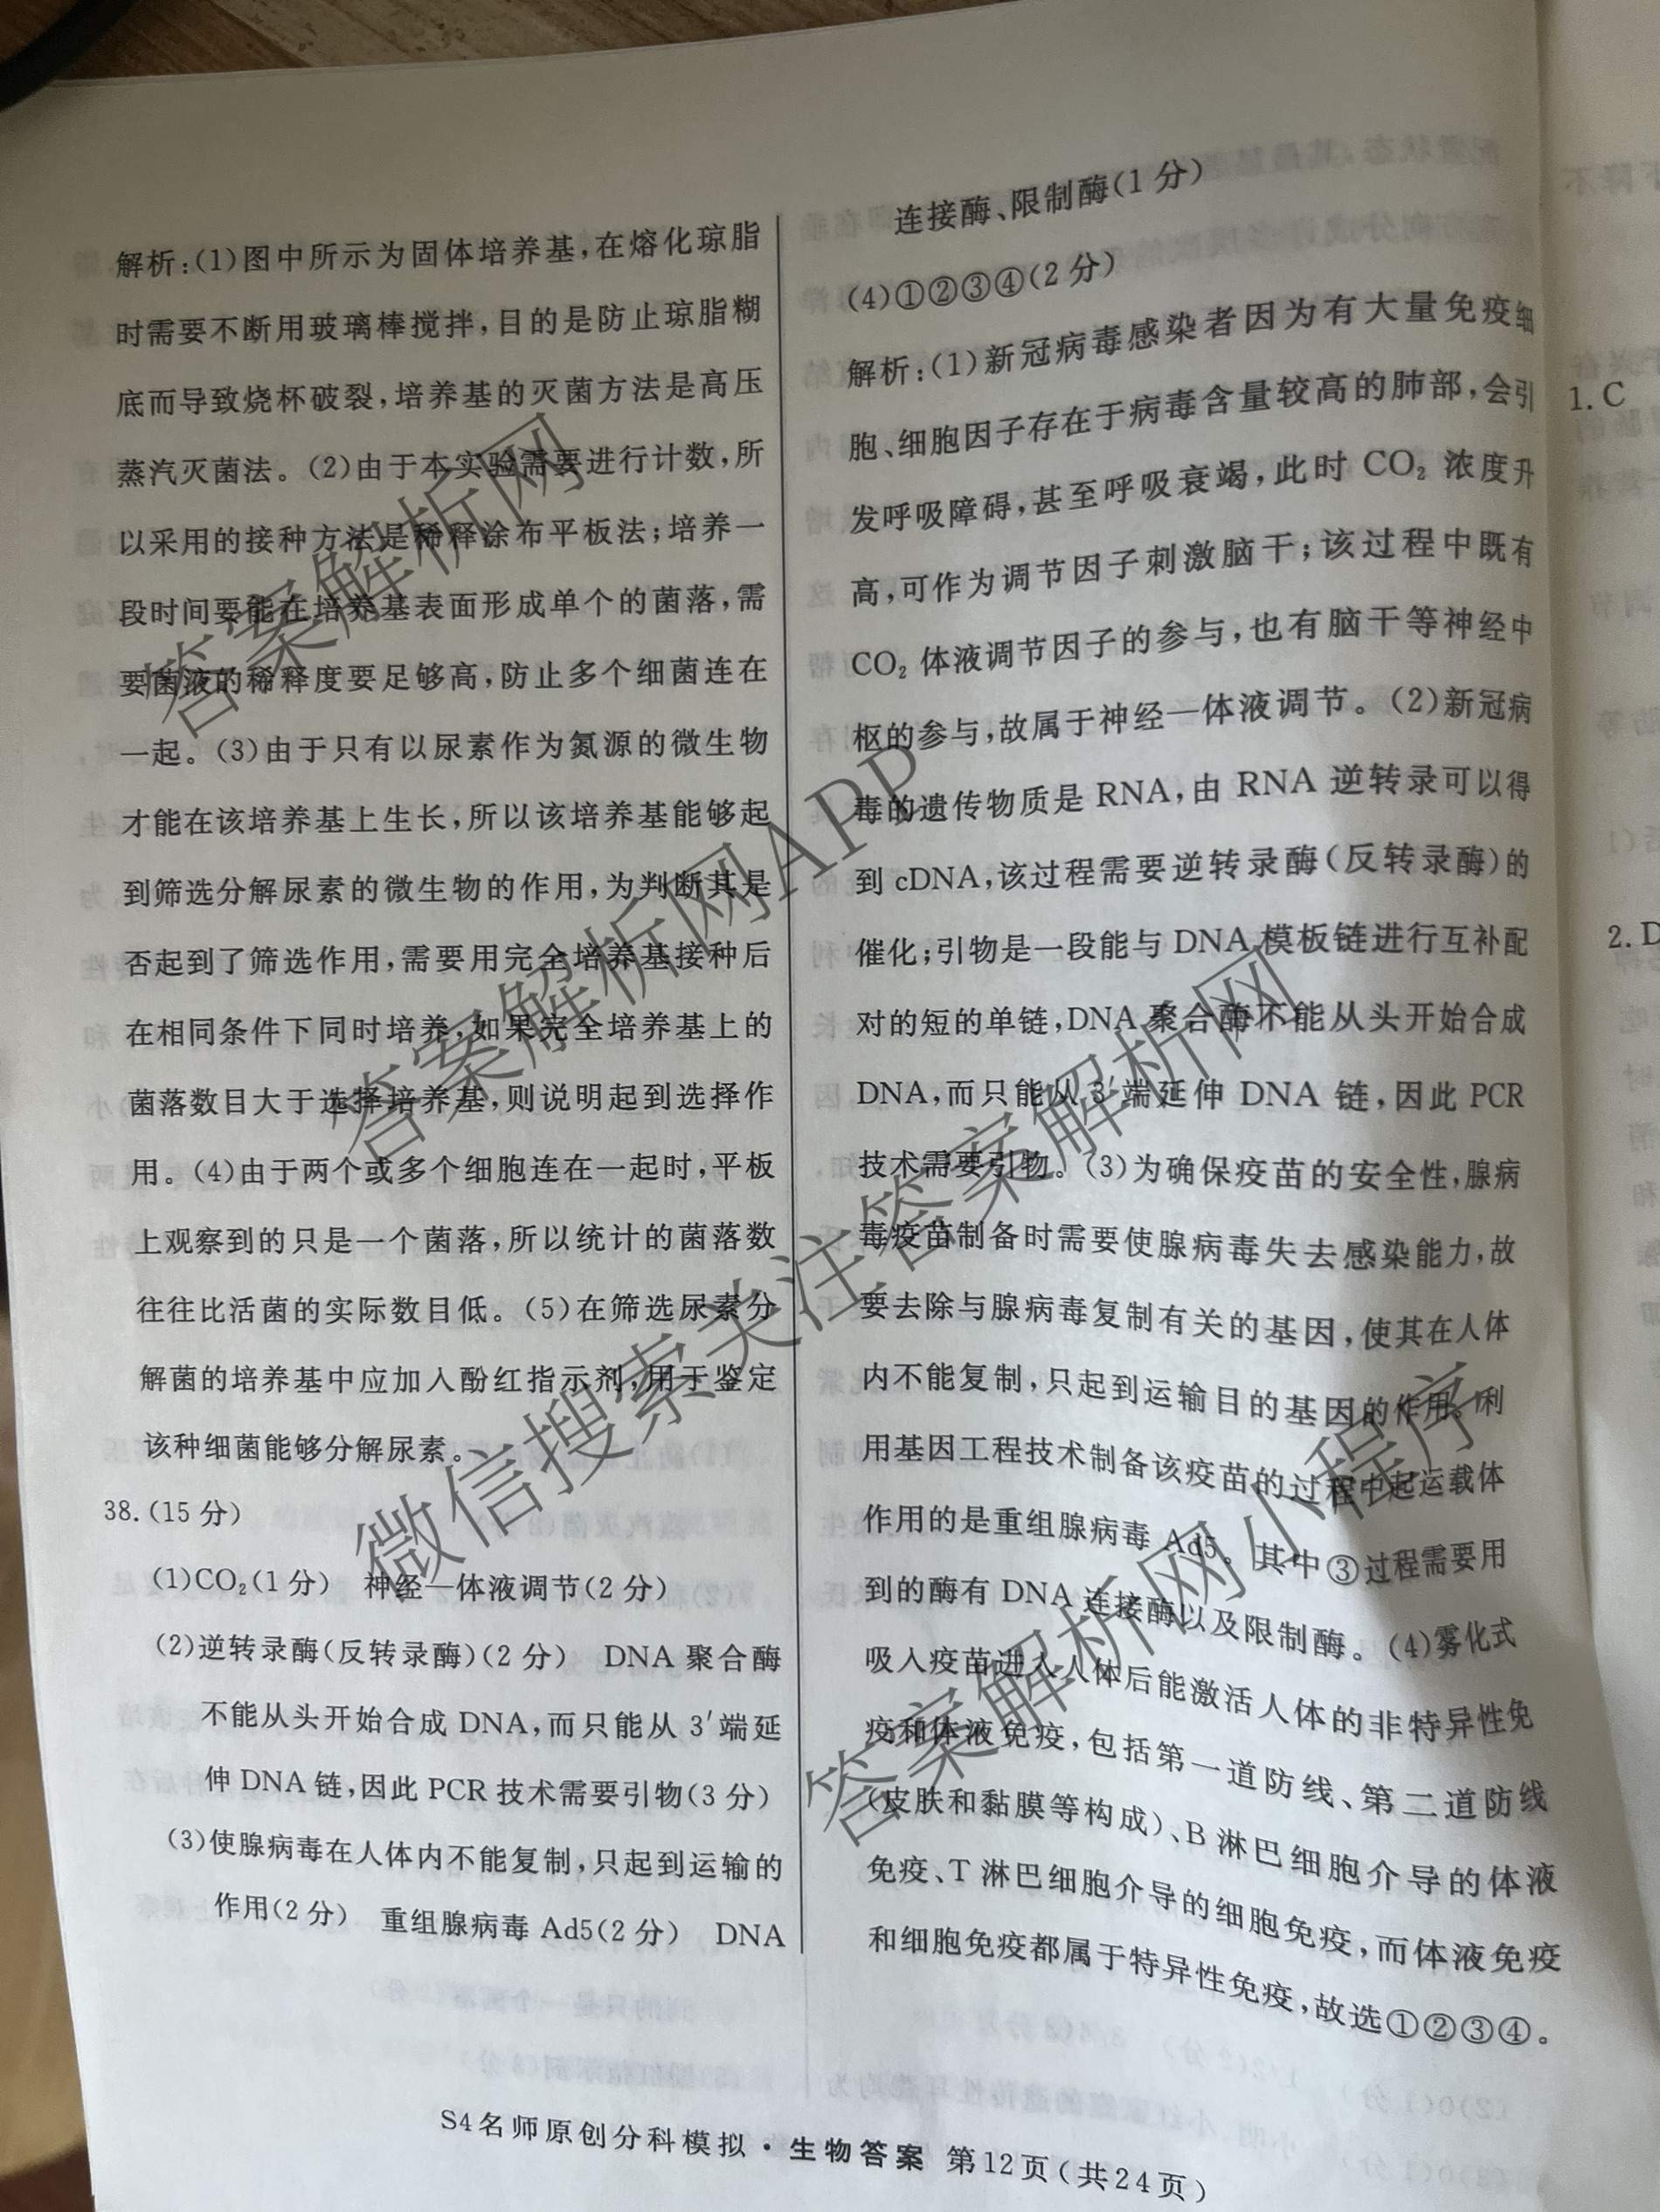 解析:(1)图中所示为固体培养基,在熔化琼脂
时需要不断用玻璃棒搅拌,目的是防止琼脂糊
底而导致烧杯破裂,培养基的灭菌方法是高压
蒸汽灭菌法。(2)由于本实验需要进行计数,所
以采用的接种方法是稀释涂布平板法;培养一
段时间要能在培养基表面形成单个的菌落,需
要菌液的稀释度要足够高,防止多个细菌连在
一起。(3)由于只有以尿素作为氮源的微生物
才能在该培养基上生长,所以该培养基能够起
到筛选分解尿素的微生物的作用,为判断其是
否起到了筛选作用,需要用完全培养基接种后
在相同条件下同时培养,如果完全培养基上的
菌落数目大于选择培养基,则说明起到选择作
用。(4)由于两个或多个细胞连在一起时,平板
上观察到的只是一个菌落,所以统计的菌落数
往往比活菌的实际数目低。(5)在筛选尿素分
解菌的培养基中应加入酚红指示剂,用于鉴定
该种细菌能够分解尿素。
38.(15分)
(1)CO₂(1分) 神经—体液调节(2分)
(2)逆转录酶(反转录酶)(2分) DNA聚合酶
不能从头开始合成DNA,而只能从3′端延
伸DNA链,因此PCR技术需要引物(3分)
(3)使腺病毒在人体内不能复制,只起到运输的
作用(2分) 重组腺病毒Ad5(2分) DNA
连接酶、限制酶(1分)
(4)①②③④(2分)
解析:(1)新冠病毒感染者因为有大量免疫细
胞、细胞因子存在于病毒含量较高的肺部,会引
发呼吸障碍,甚至呼吸衰竭,此时CO₂浓度升
高,可作为调节因子刺激脑干;该过程中既有
CO₂体液调节因子的参与,也有脑干等神经中
枢的参与,故属于神经—体液调节。(2)新冠病
毒的遗传物质是RNA,由RNA逆转录可以得
到cDNA,该过程需要逆转录酶(反转录酶)的
催化;引物是一段能与DNA模板链进行互补配
对的短的单链,DNA聚合酶不能从头开始合成
DNA,而只能从3′端延伸DNA链,因此PCR
技术需要引物。(3)为确保疫苗的安全性,腺病
毒疫苗制备时需要使腺病毒失去感染能力,故
要去除与腺病毒复制有关的基因,使其在人体
内不能复制,只起到运输目的基因的作用。利
用基因工程技术制备该疫苗的过程中起运载体
作用的是重组腺病毒Ad5。其中③过程需要用
到的酶有DNA连接酶以及限制酶。(4)雾化式
吸入疫苗进入人体后能激活人体的非特异性免
疫和体液免疫,包括第一道防线、第二道防线
(皮肤和黏膜等构成)、B淋巴细胞介导的体液
免疫、T淋巴细胞介导的细胞免疫,而体液免疫
和细胞免疫都属于特异性免疫,故选①②③④。
1.C
2.D
S4名师原创分科模拟·生物答案 第12页(共24页)
答案解析网
答案解析网APP
微信搜索关注答案解析网
答案解析网小程序